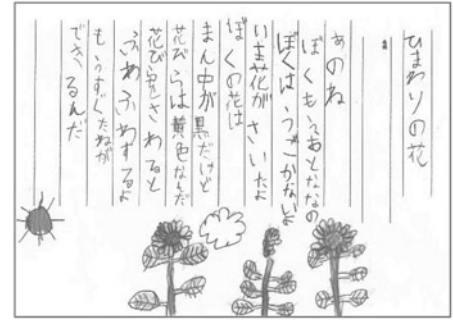 ひまわりの花
あのね
ぼくもうおとななの
ぼくはうごかないよ
いま花がさいたよ
ぼくの花は
まん中が黒だけど
花びらは黄色なんだ
花びらをさわると
ふわふわするよ
もうすぐたねが
できるんだ